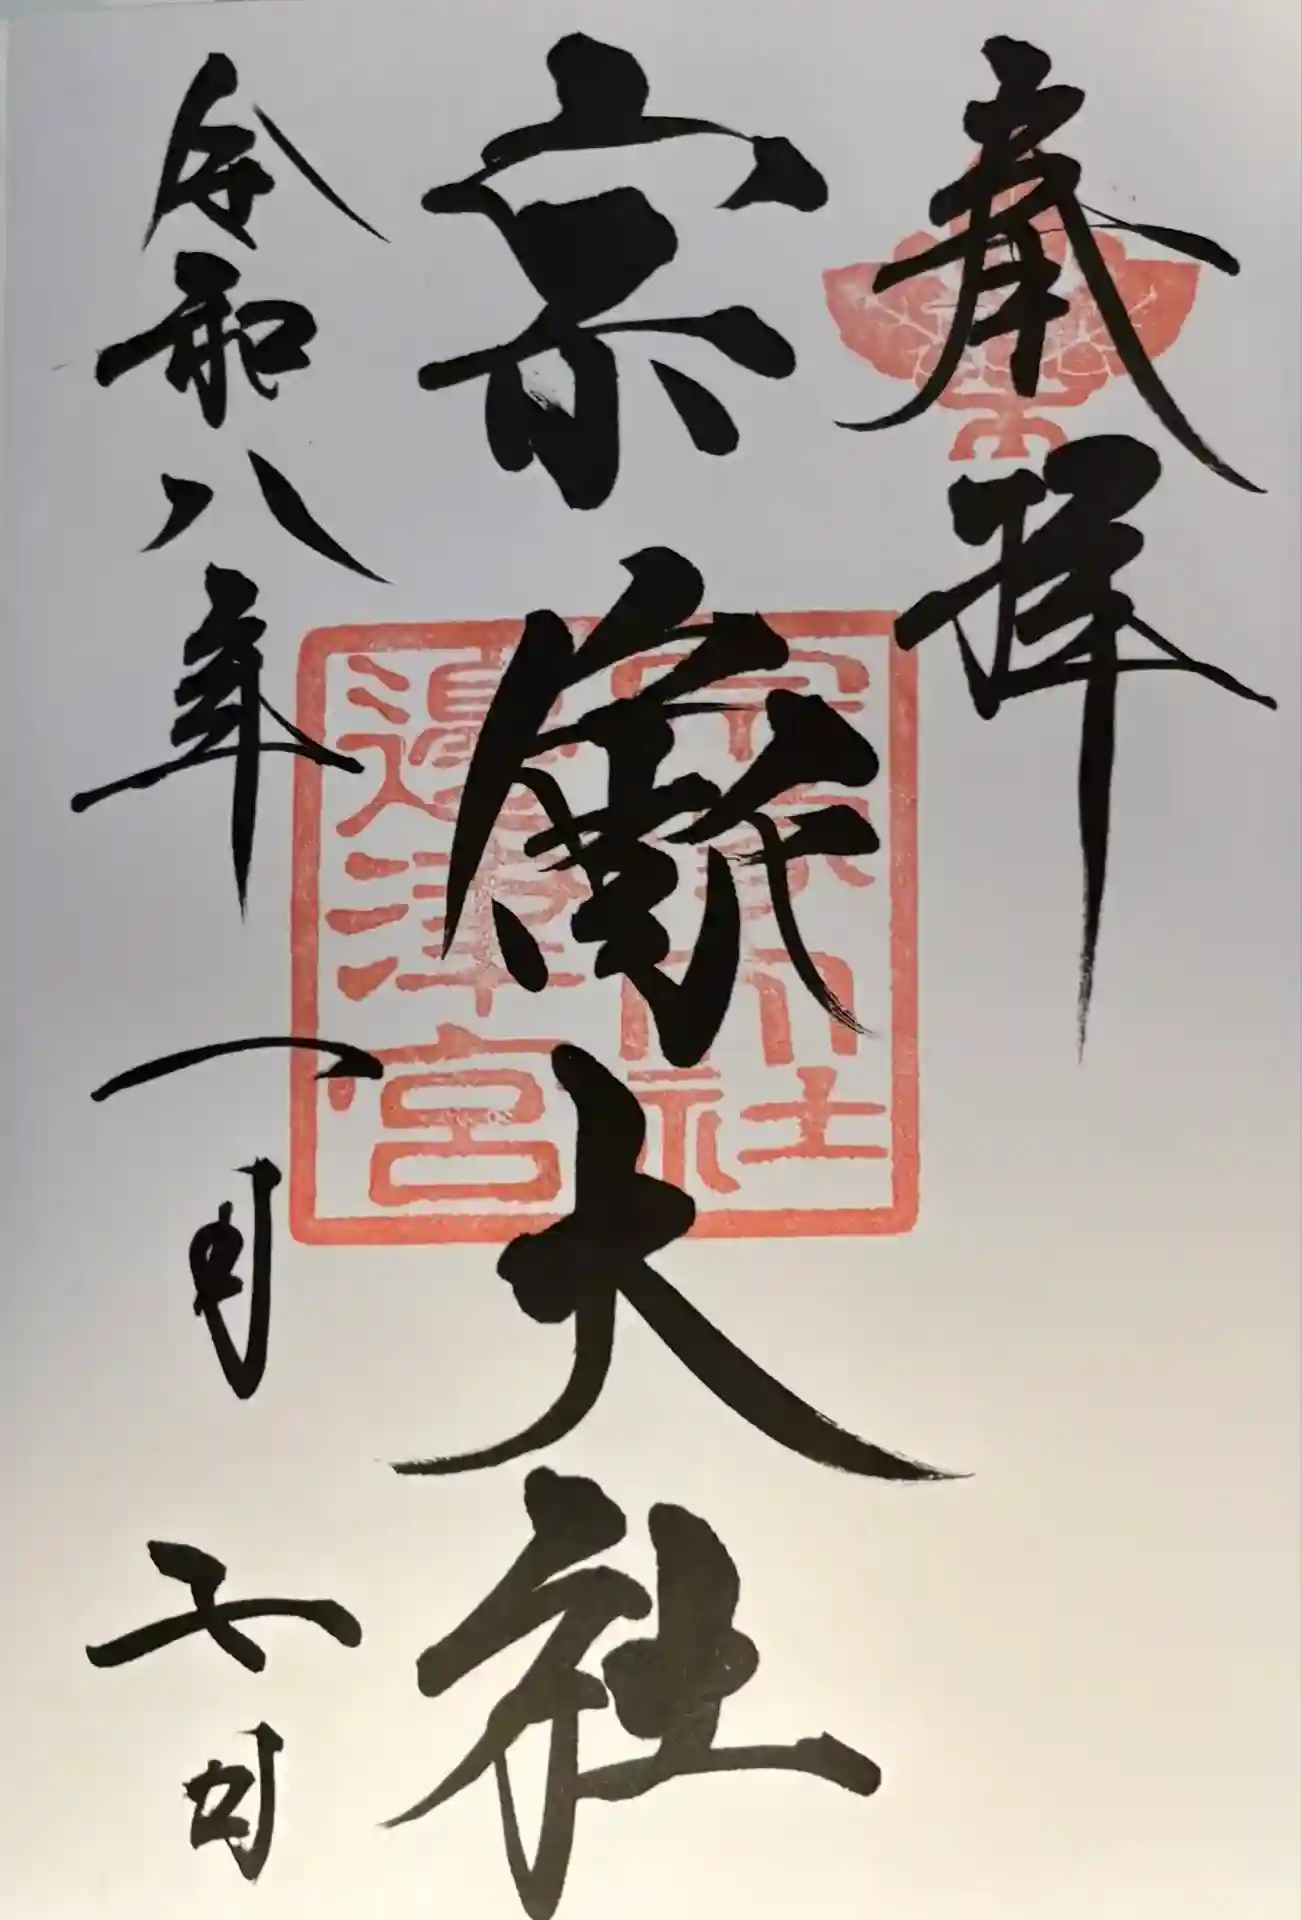 奉拝
宗像大社
令和八年一月七日
宗像大社
邊津宮